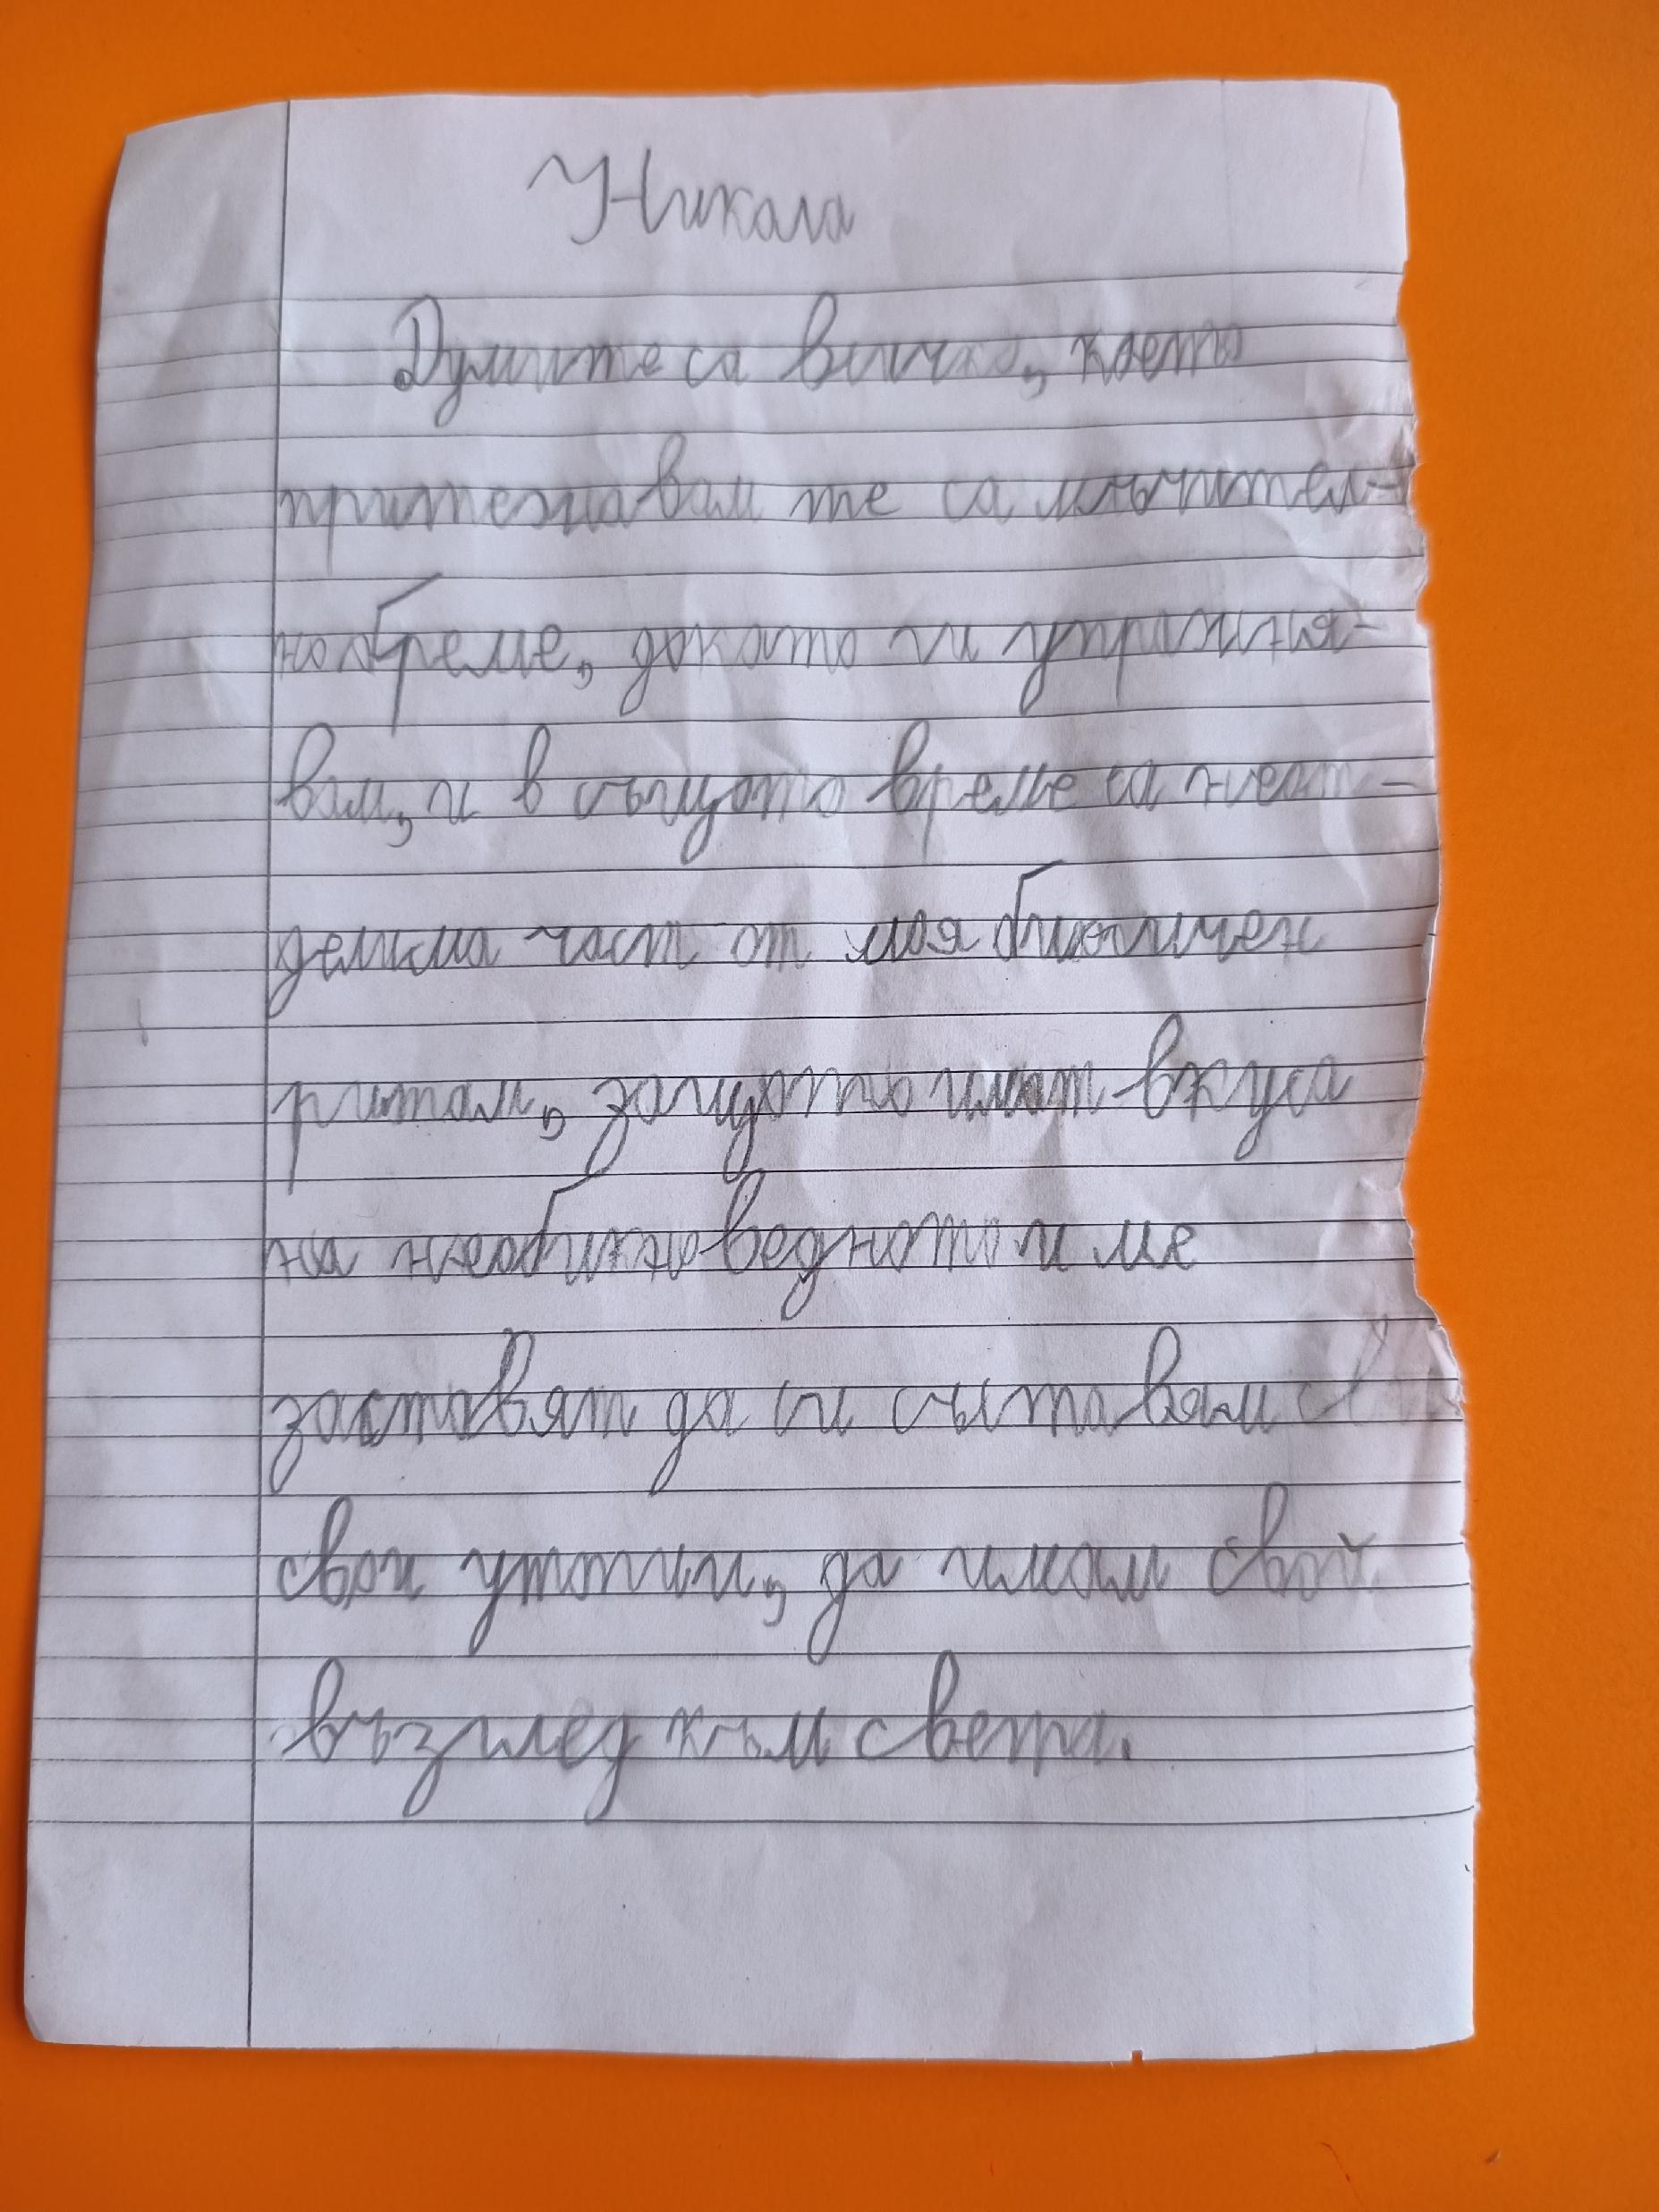 Никола
Думите са всичко, което
притежавам те са мъчител-
но бреме, докато ги упражня-
вам, и в същото време са неот-
делима част от моя биологичен
ритъм, защото имат вкуса
на необикноведното и ме
заставят да си съставям
свои утопии, да имам свой
възглед към света.